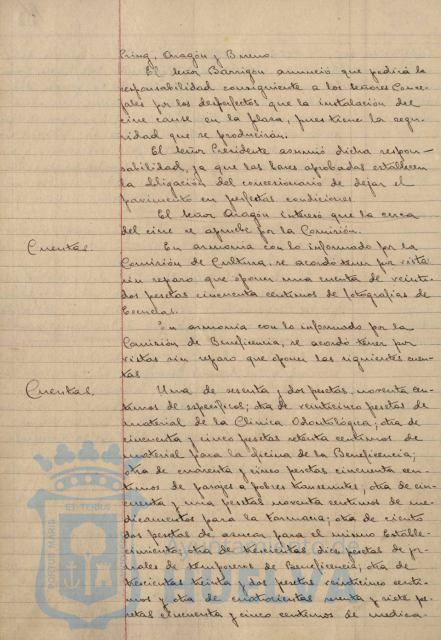 Pring, Aragón y Bueno.
El señor Barrigón anunció que pedirá la
responsabilidad consiguiente a los señores Conce-
jales por los desperfectos que la instalación del
cine cause en la plaza, pues tiene la segu-
ridad que se producirán.
El señor Presidente asumió dicha respon-
sabilidad, ya que las bases aprobadas establecen
la obligación del concesionario de dejar el
pavimento en perfectas condiciones
El señor Aragón interesó que la cerca
del cine se apruebe por la Comisión.
Cuentas. En armonía con lo informado por la
Comisión de Cultura, se acordó tener por vista
sin reparo que oponer una cuenta de veinti-
dos pesetas cincuenta centimos de fotografias de
Escuelas.
En armonía con lo informado por la
Comisión de Beneficencia, se acordó tener por
vistas sin reparo que oponer las siguientes cuen-
tas
Cuentas. Una de sesenta y dos pesetas, noventa cen-
timos de especificos; otra de veinticinco pesetas de
material de la Clinica Odontológica; otra de
cincuenta y cinco pesetas setenta centimos de
material para la oficina de la Beneficencia;
otra de cuarenta y cinco pesetas cincuenta cen-
timos de pasajes a pobres transeuntes; otra de cin-
cuenta y una pesetas noventa centimos de me-
dicamentos para la Farmacia; otra de ciento
dos pesetas de azucar para el mismo Estable-
cimiento; otra de trescientas diez pesetas de jor-
nales de temporeros de Beneficencia; otra de
trescientas treinta y dos pesetas veinticinco centi-
mos y otra de cuatrocientas y siete pe-
setas cincuenta y cinco centimos de medica-
PORTUS MARIS
ET TERRIS